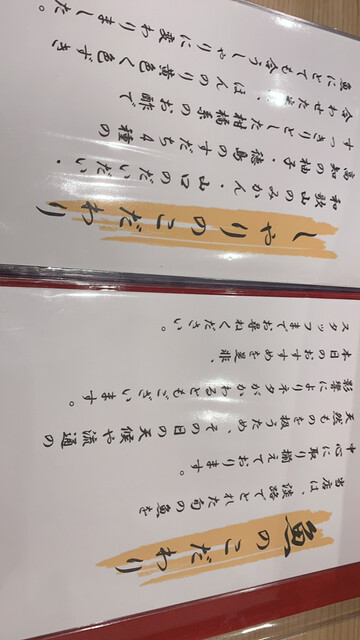 しゃりのこだわり
和歌山のみかん・山口のだいだい・
高知の柚子・徳島のすだち4種の
すっきりとした柑橘系のお酢で
合わせた米、ほんのり黄色く色ずき
魚にとても合うしゃりに変わりました。
魚のこだわり
当店は、淡路でとれた旬の魚を
中心に取り揃えております。
天然ものを扱うため、その日の天候や流通の
影響によりネタがかわることもございます。
本日のおすすめを是非、
スタッフまでお尋ねください。